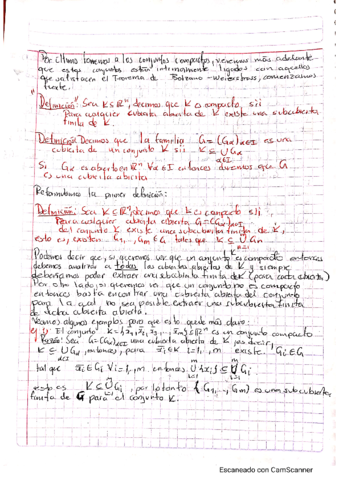 Por último tenemos a los conjuntos compactos, veremos más adelante
que estos conjuntos están íntimamente ligados con aquellos
que satisfacen el Teorema de Bolzano-Weierstrass, comenzamos
fuerte.
Definición: Sea K⊆ℝⁿ, decimos que K es compacto, sii
Para cualquier cubierta abierta de K existe una subcubierta
finita de K.
Definición: Decimos que la familia G=(Gα)α∈I es una
cubierta de un conjunto K sii K ⊆ ∪Gα
α∈I
Si Gα es abierto en ℝⁿ ∀α∈I entonces diremos que G
es una cubierta abierta
Retomando la primer definición:
Definición: Sea K⊆ℝⁿ, decimos que K es compacto sii
Para cualquier cubierta abierta G=(Gα)α∈I
del conjunto K existe una subcubierta finita de K,
esto es, existen G₁,...,Gm ∈ G tales que K ⊆ ∪Gn
Podemos decir que, si queremos ver que un conjunto es compacto entonces
debemos mostrar a todas las cubiertas abiertas de K y siempre
deberíamos poder extraer una subcubierta finita de K (para cada abierta)
Por otro lado, si queremos ver que un conjunto no es compacto
entonces basta encontrar una cubierta abierta del conjunto
para la cual no sea posible extraer una subcubierta finita
de dicha cubierta abierta.
Veamos algunos ejemplos para que esto quede más claro:
El conjunto K={x̄₁, x̄₂, x̄₃, ..., x̄m}⊆ℝⁿ es un conjunto compacto
Sea G=(Gα)α∈I una cubierta abierta de K, es decir,
K ⊆ ∪Gα, entonces, para x̄i∈K i=1,..,m existe Gi∈G
α∈I
tal que x̄i∈Gi ∀i=1,..,m entonces ∪{xi}⊆∪Gi
esto es K⊆∪Gi, por lo tanto {G₁,...,Gm} es una subcubierta
finita de G para el conjunto K.
Escaneado con CamScanner